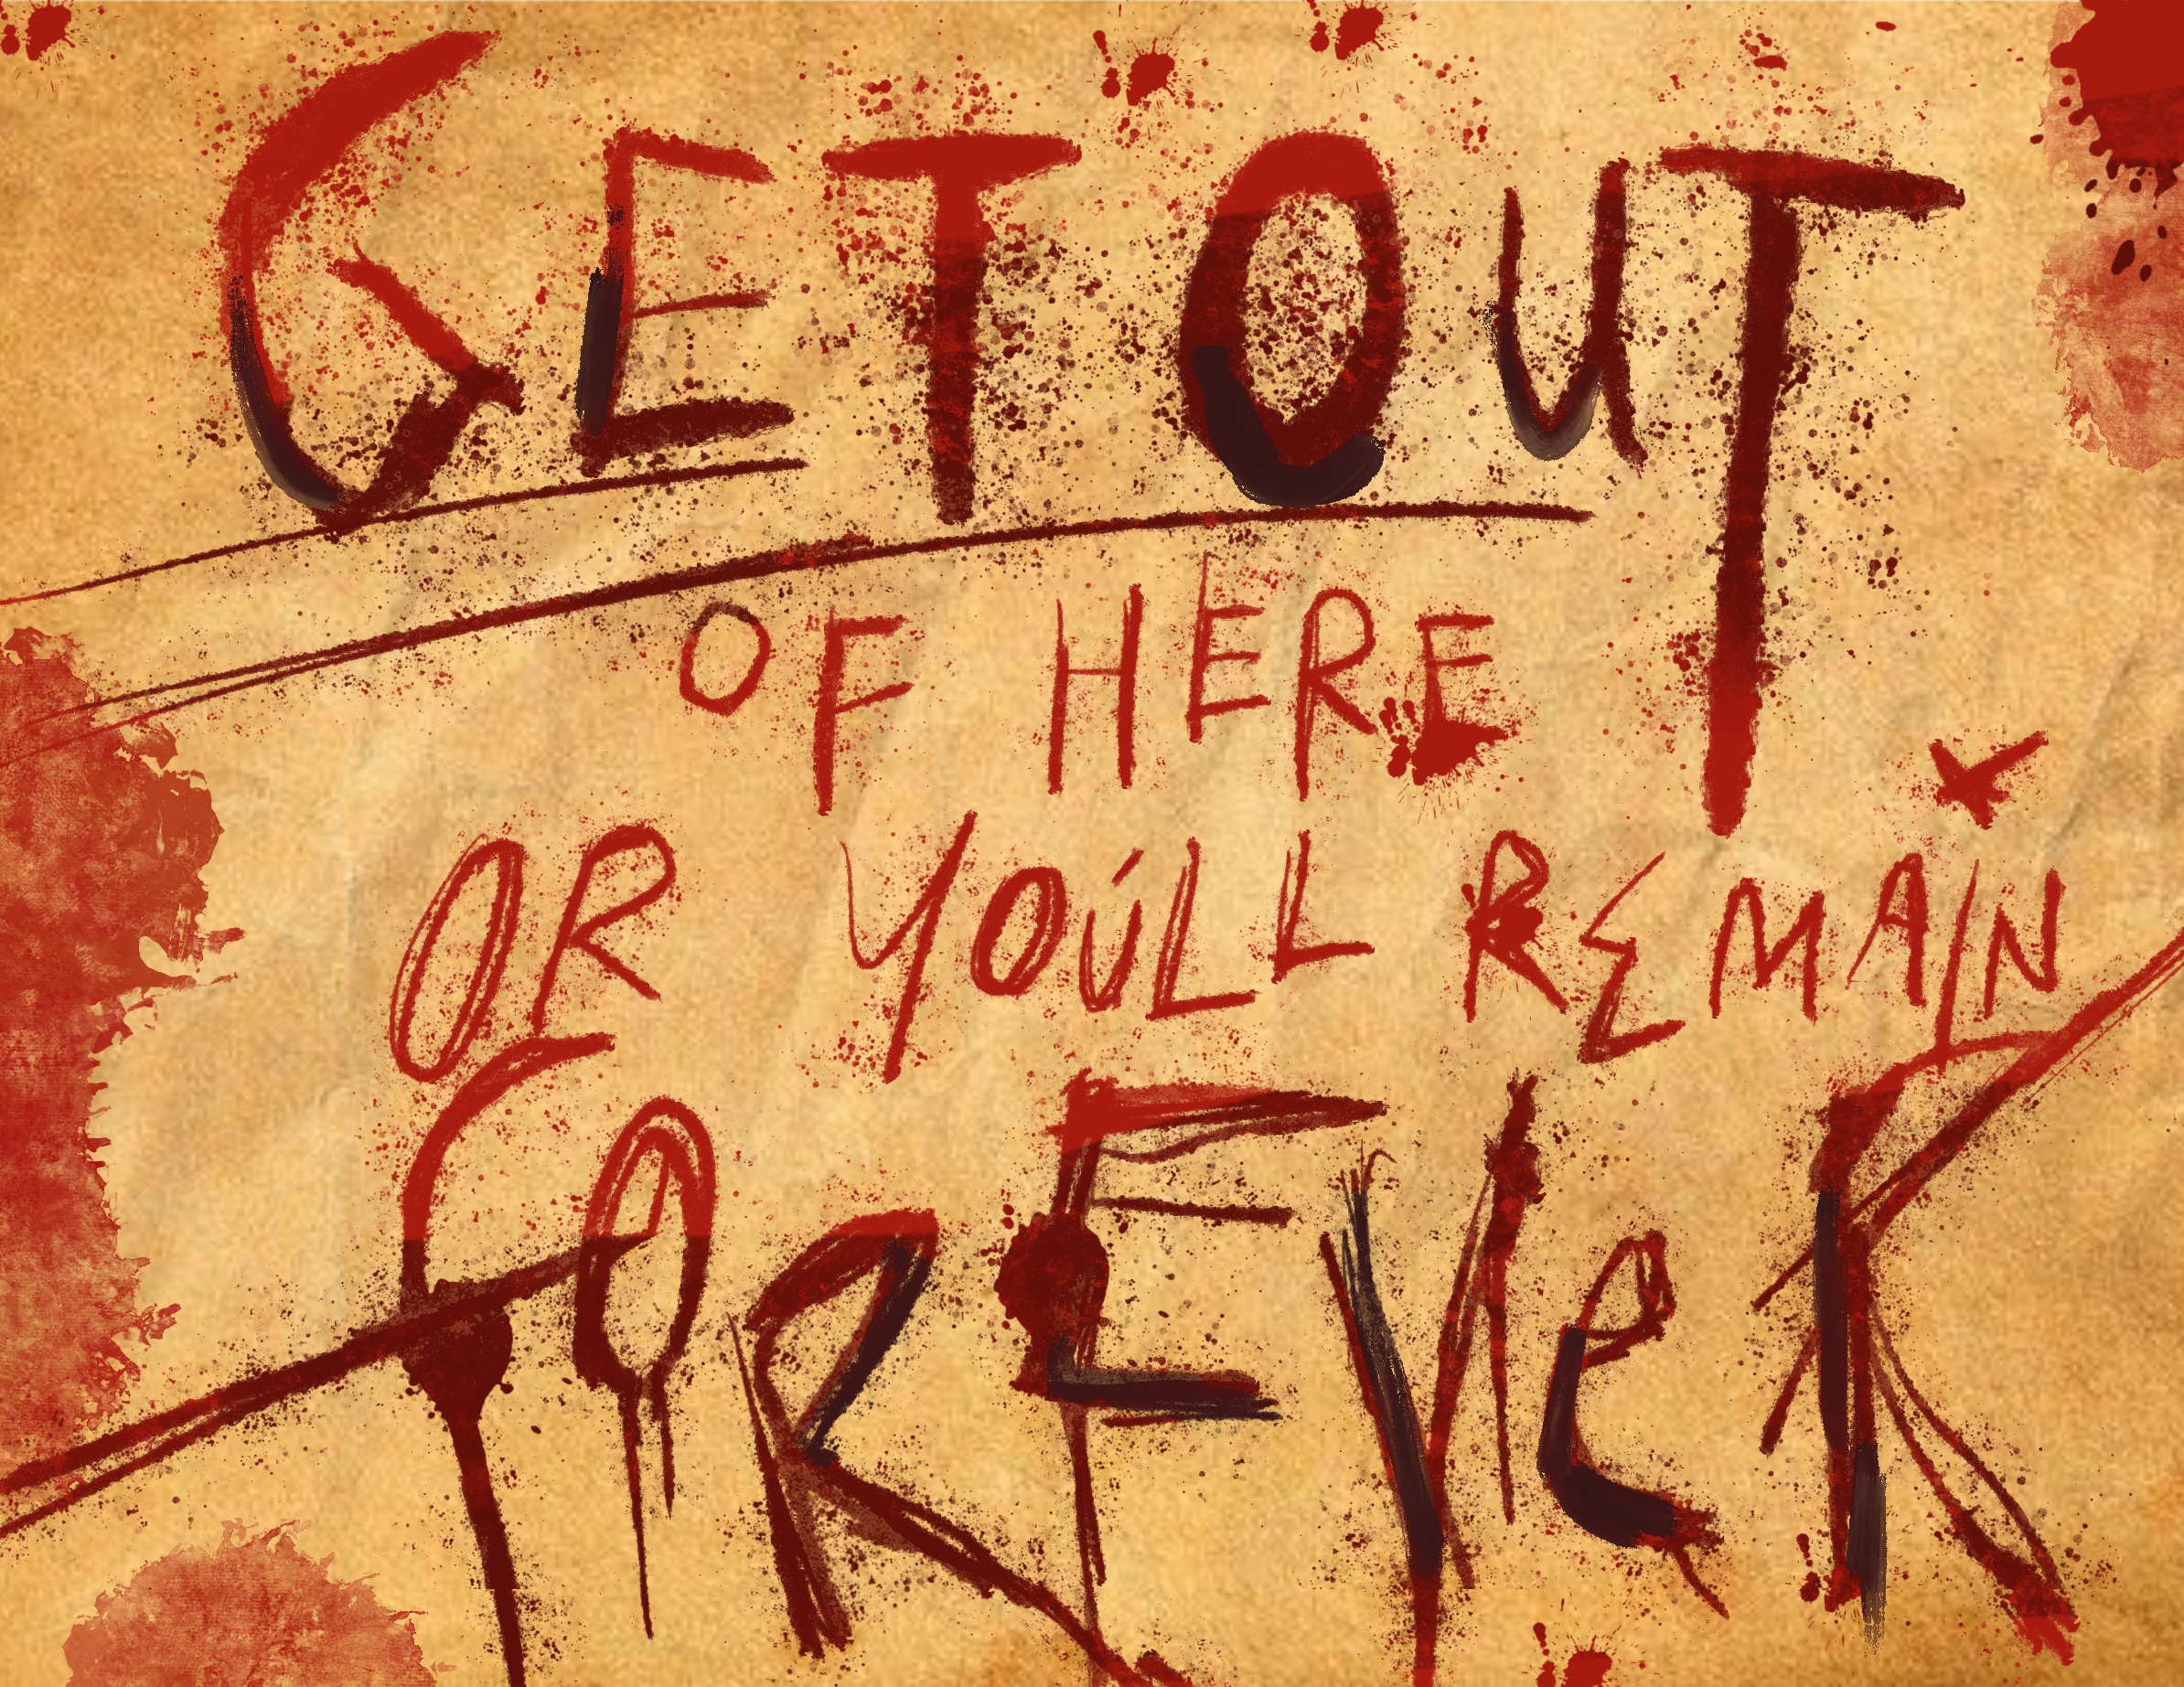 GET OUT
OF HERE
OR YOU'LL REMAIN
FOREVeR